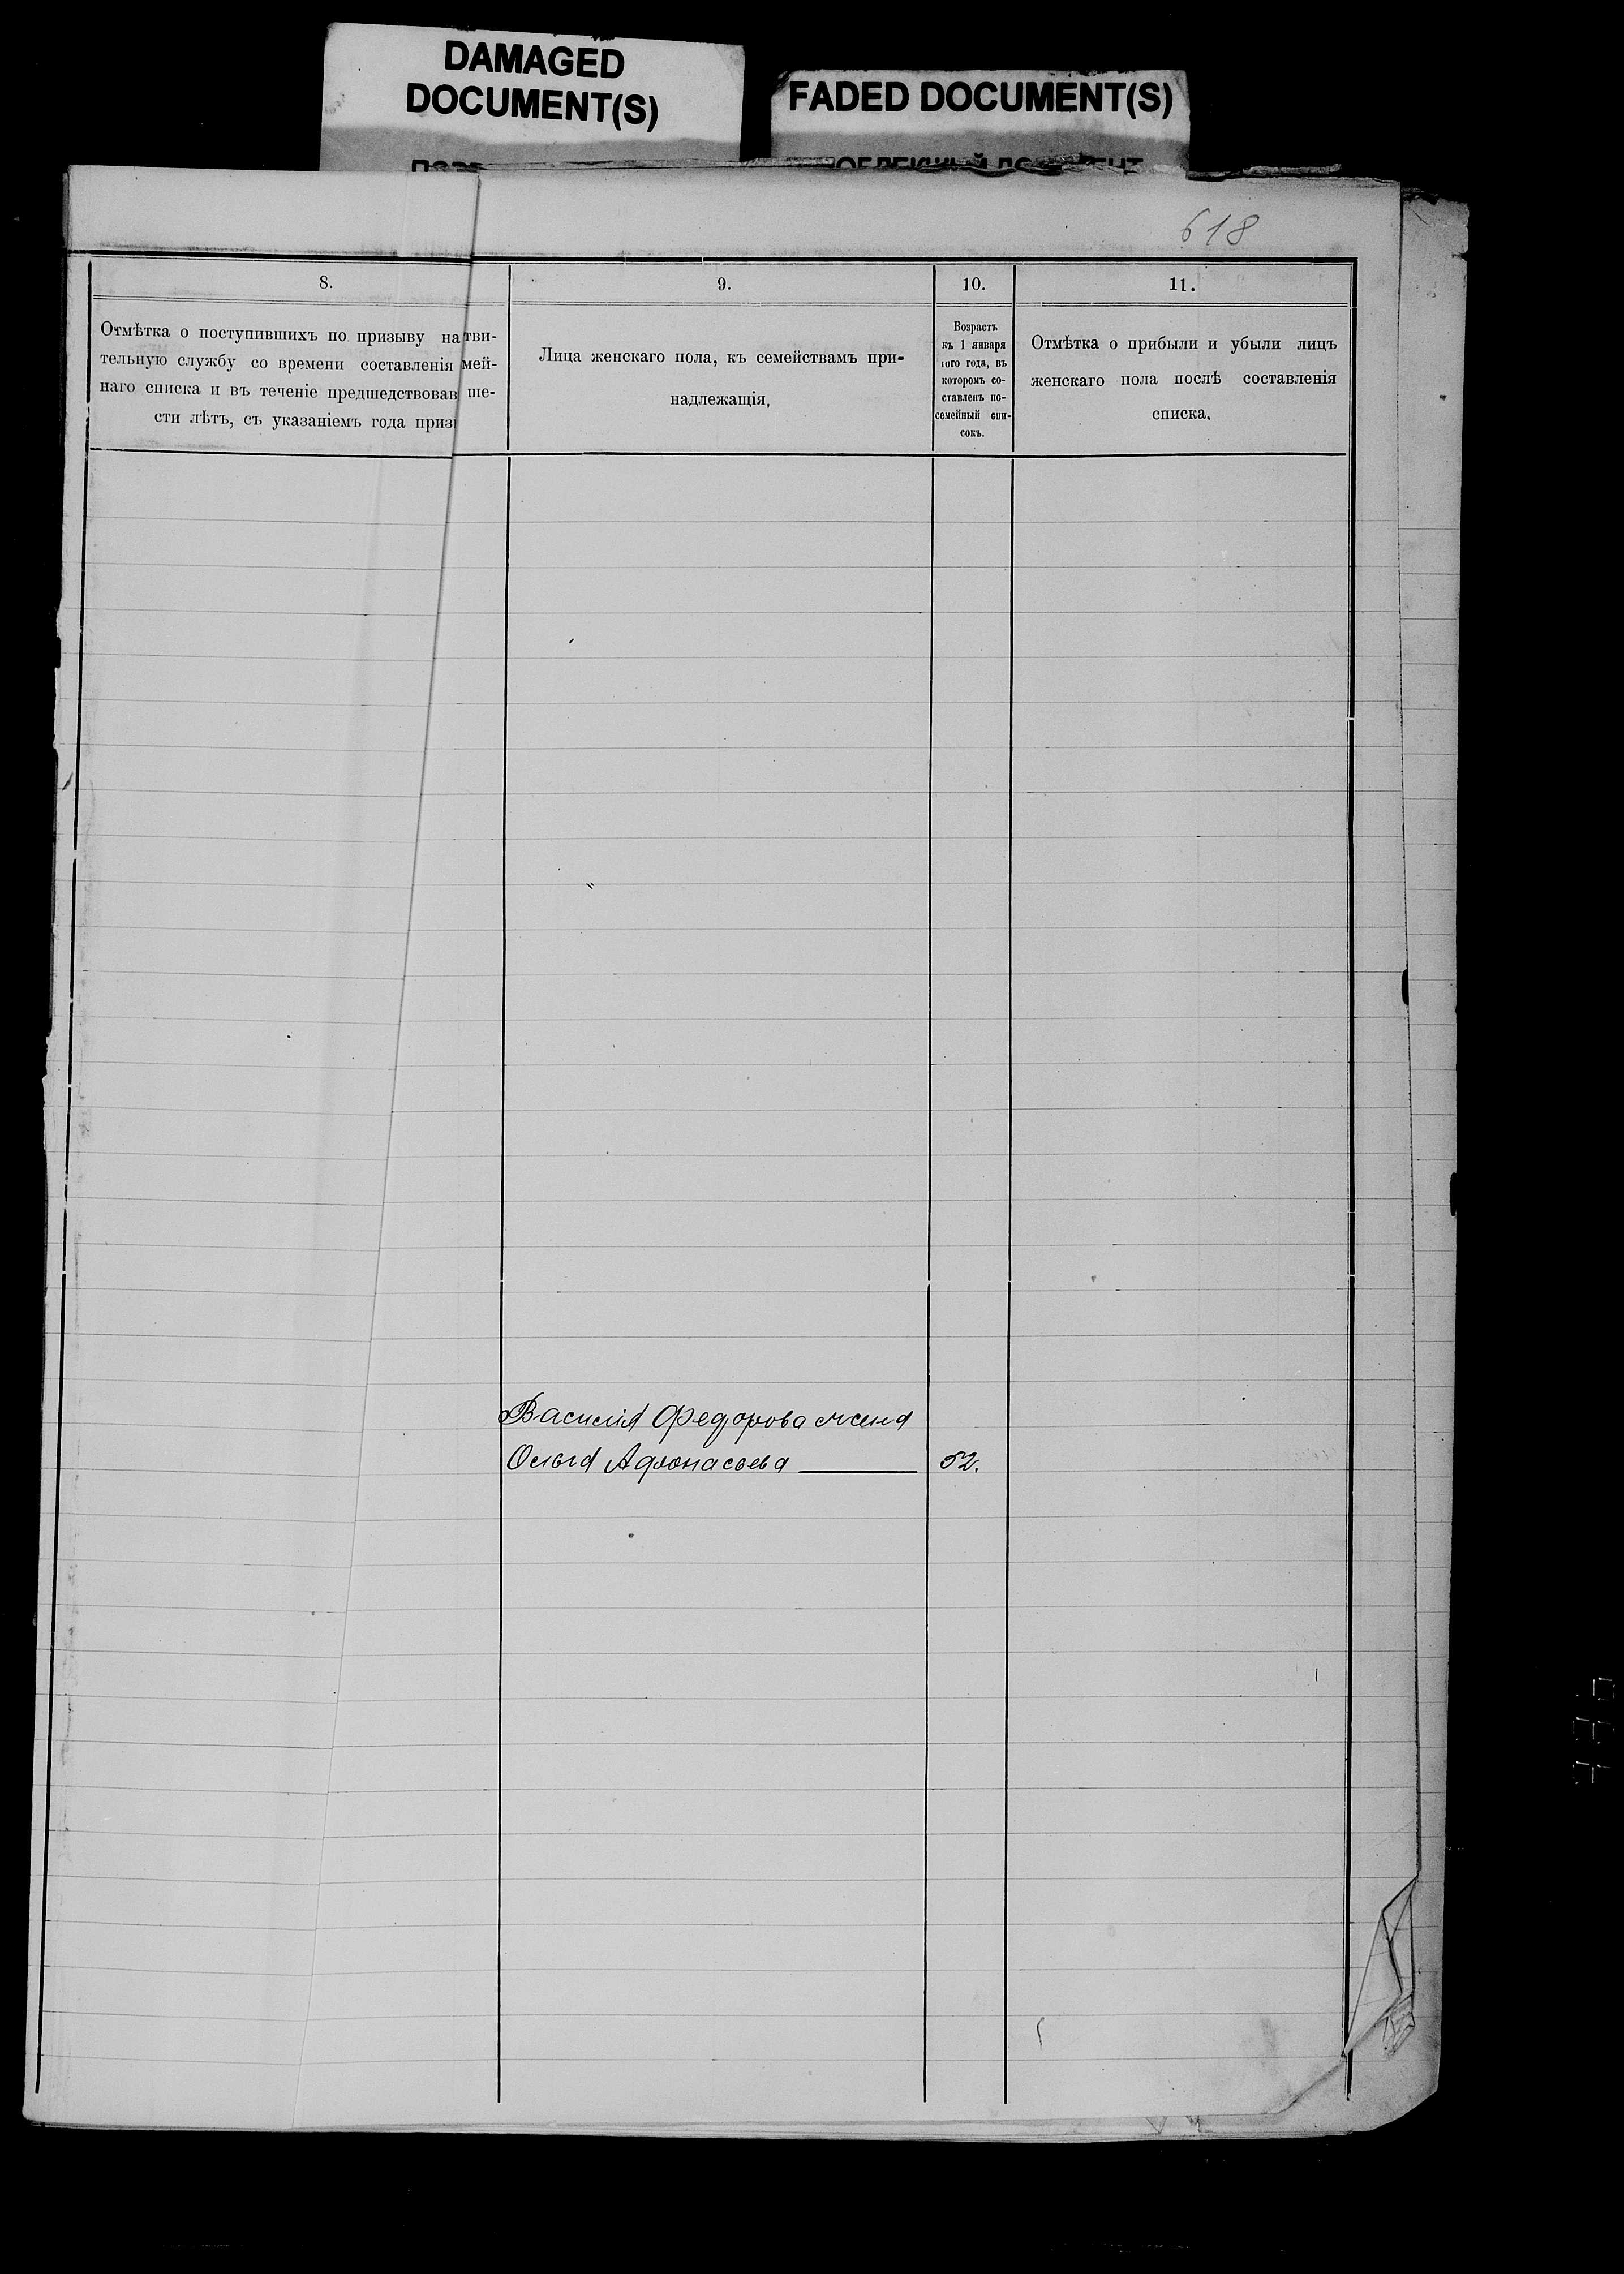 DAMAGED
DOCUMENT(S)
FADED DOCUMENT(S)
618
8.
Отмѣтка о поступившихъ по призыву на тви-
тельную службу со времени составленія мей-
наго списка и въ теченіе предшедствовав ше-
сти лѣтъ, съ указаніемъ года приз
9.
Лица женскаго пола, къ семействамъ при-
надлежащія,
10.
Возрастъ
къ 1 января
того года, въ
которомъ со-
ставленъ по-
семейный спи-
сокъ.
11.
Отмѣтка о прибыли и убыли лицъ
женскаго пола послѣ составленія
списка,
Василія Федорова жена
Ольга Афонасьева
52.